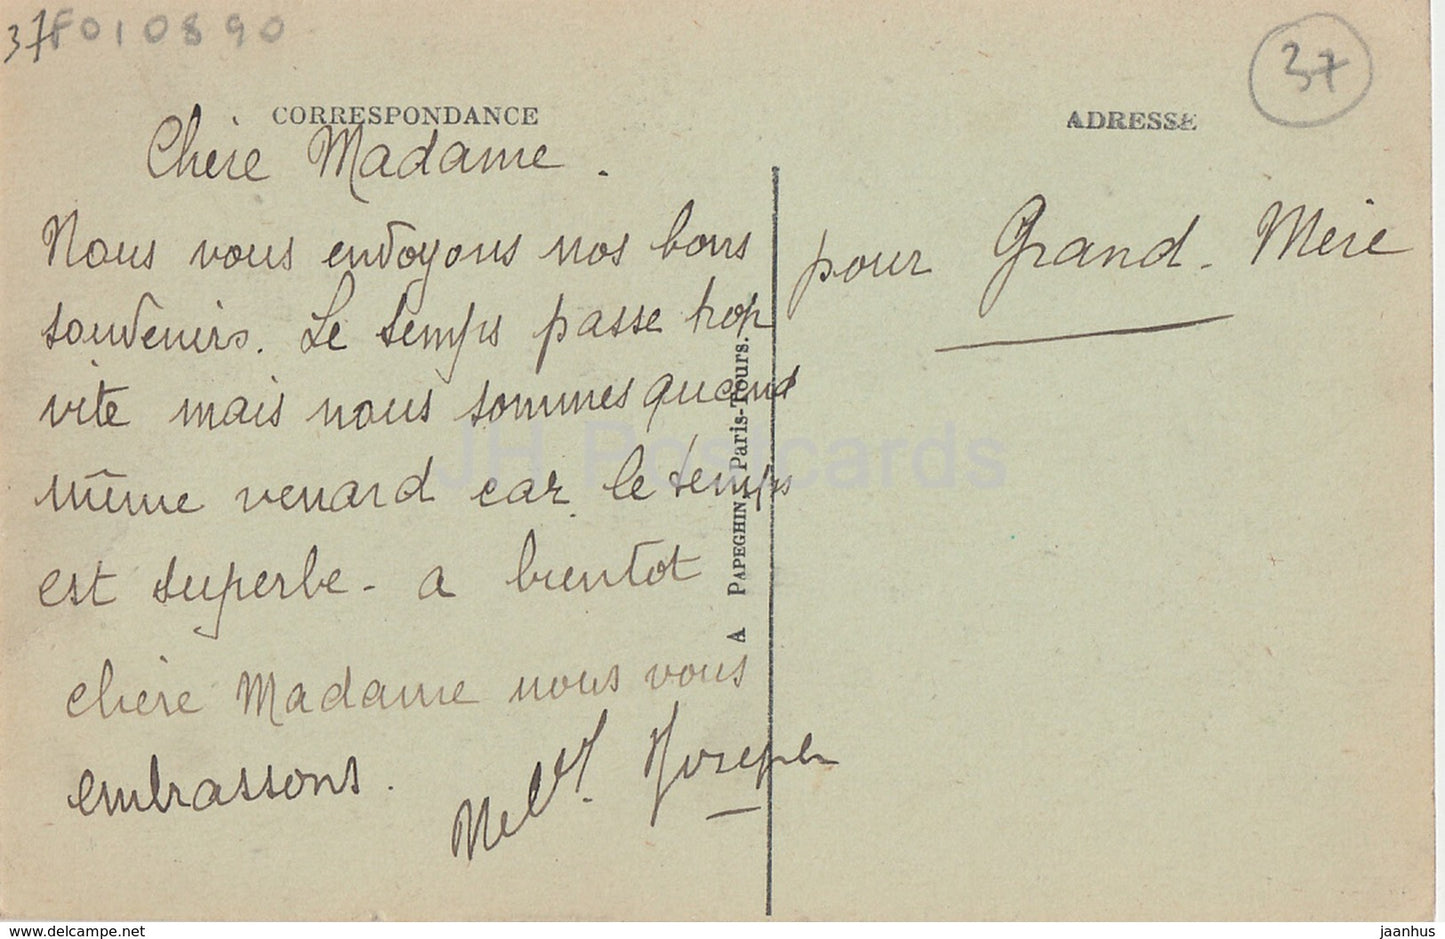 37
F010890
37
CORRESPONDANCE
ADRESSE
Chère Madame.
Nous vous envoyons nos bons
souvenirs. Le temps passe trop
vite mais nous sommes quand
même veinard car le temps
est superbe - a bientot
chère Madame nous vous
embrassons.
Joseph
pour Grand-Mère
A PAPEGHIN, Paris-Tours.
JH Postcards
www.delcampe.net
jaanhus